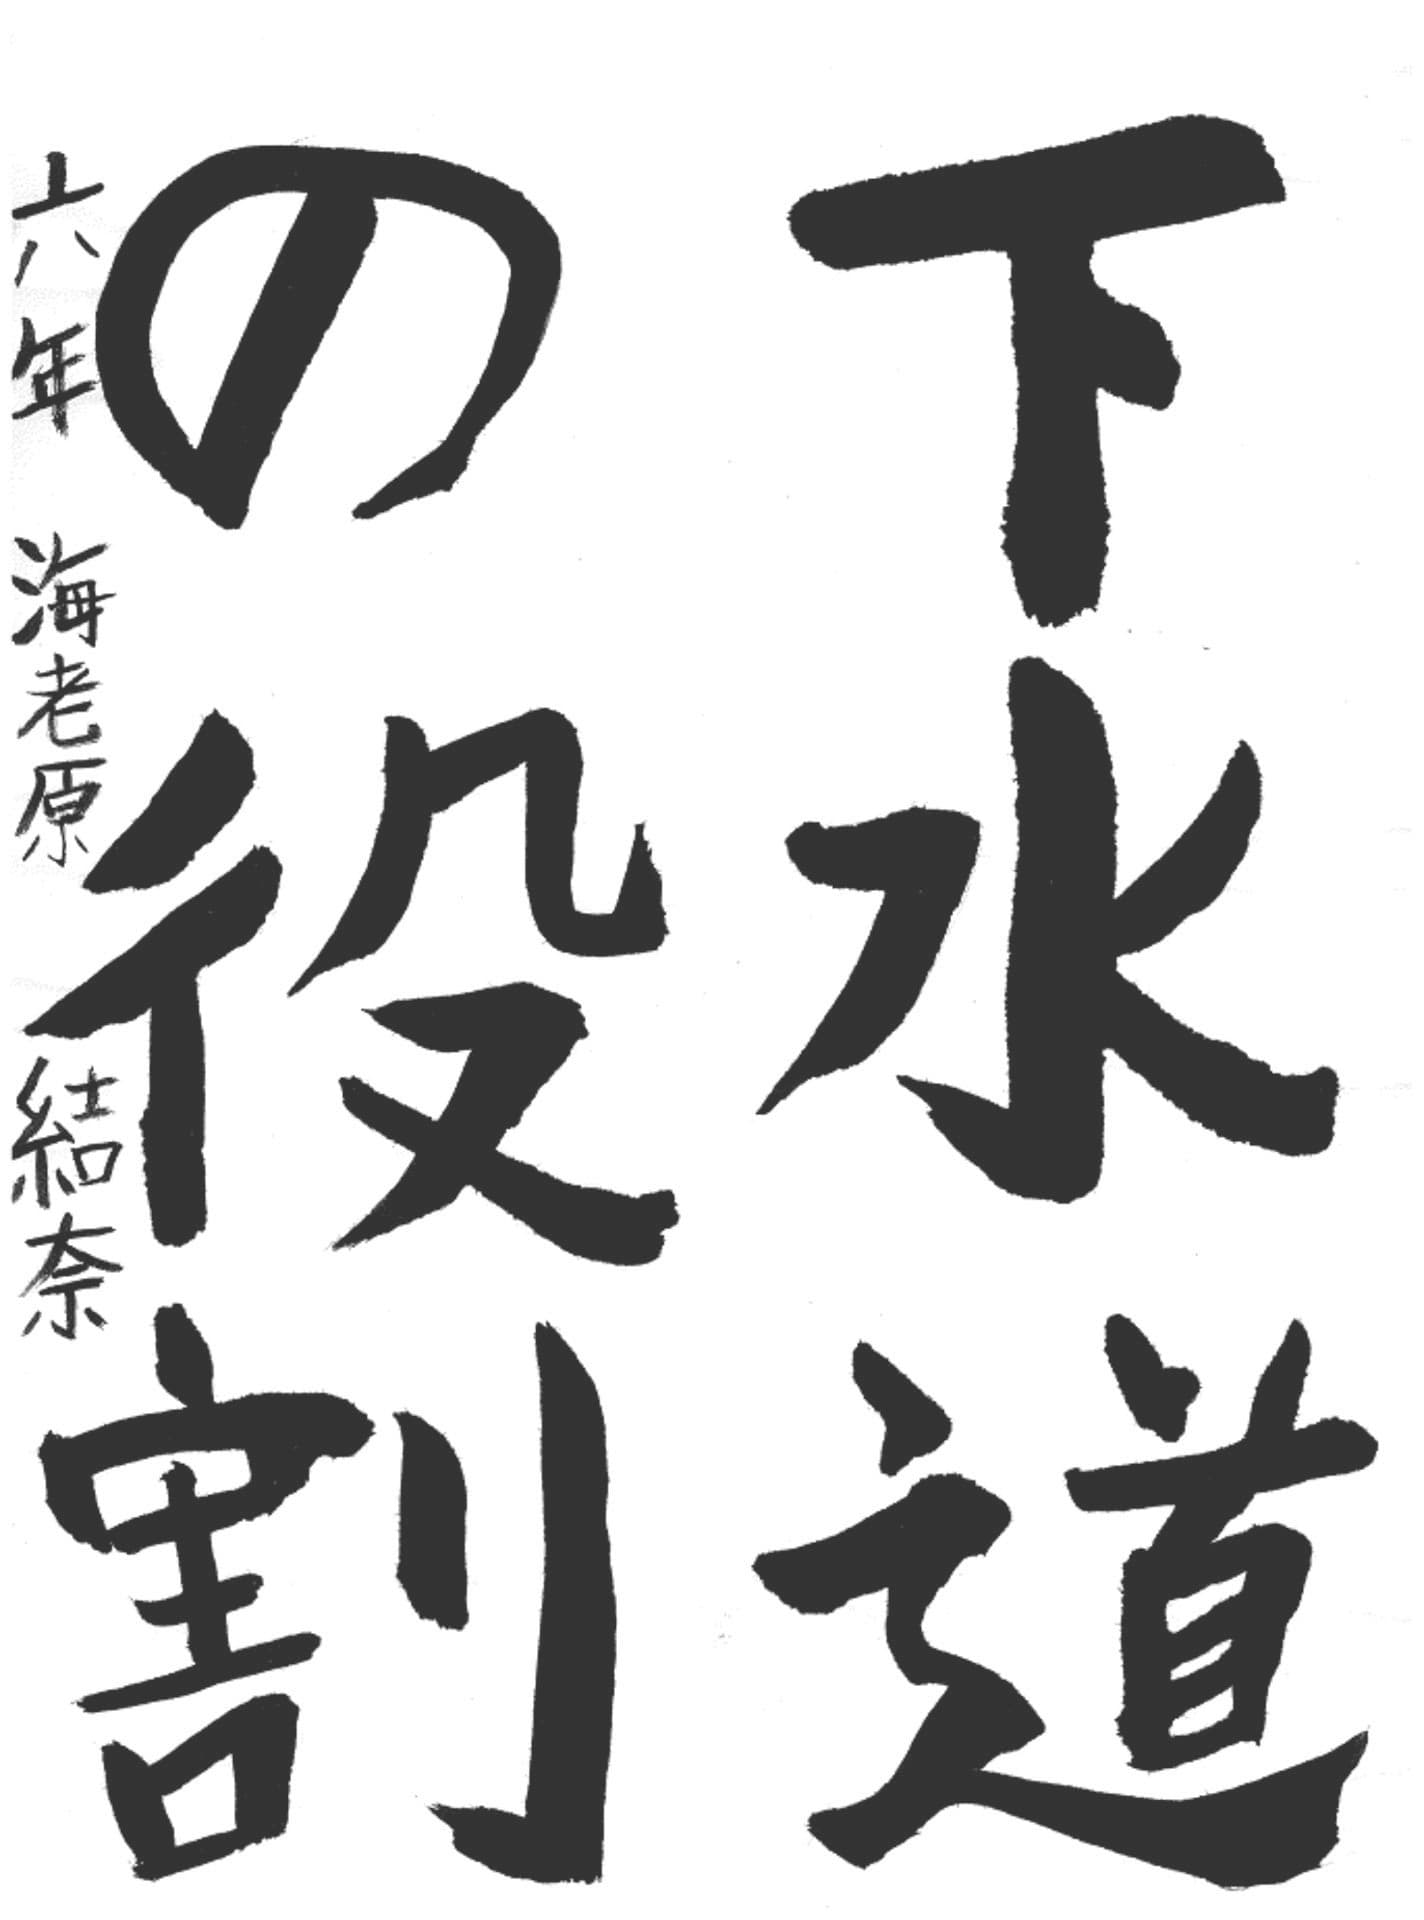 下水道
の役割
六年 海老原 結奈